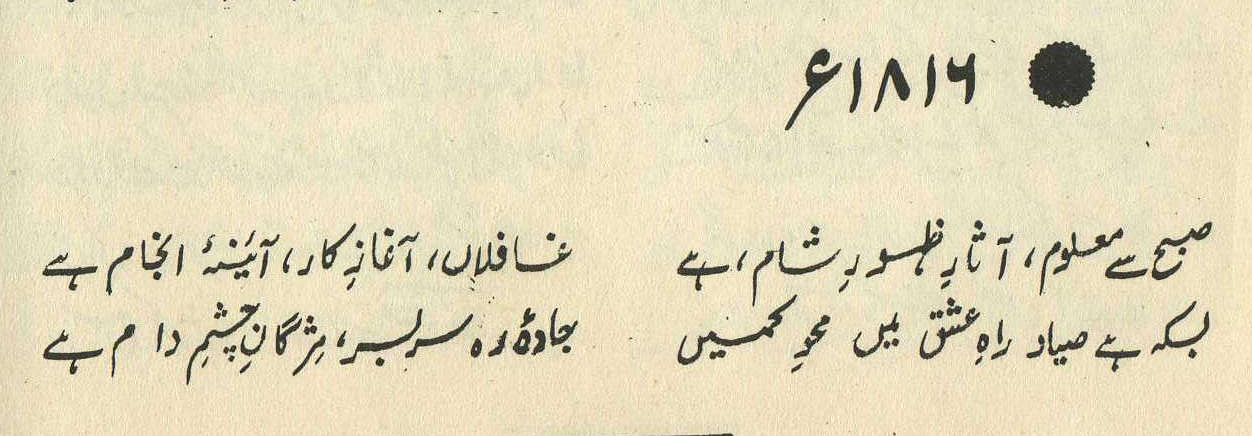 ۱۸۱۶ء
صبح سے معلوم، آثارِ ظہورِ شام، ہے غافلاں، آغازِ کار، آئینۂ انجام ہے
بسکہ ہے صیاد راہِ عشق میں محوِ کمیں جادۂ رہ سربسر، مژگانِ چشمِ دام ہے